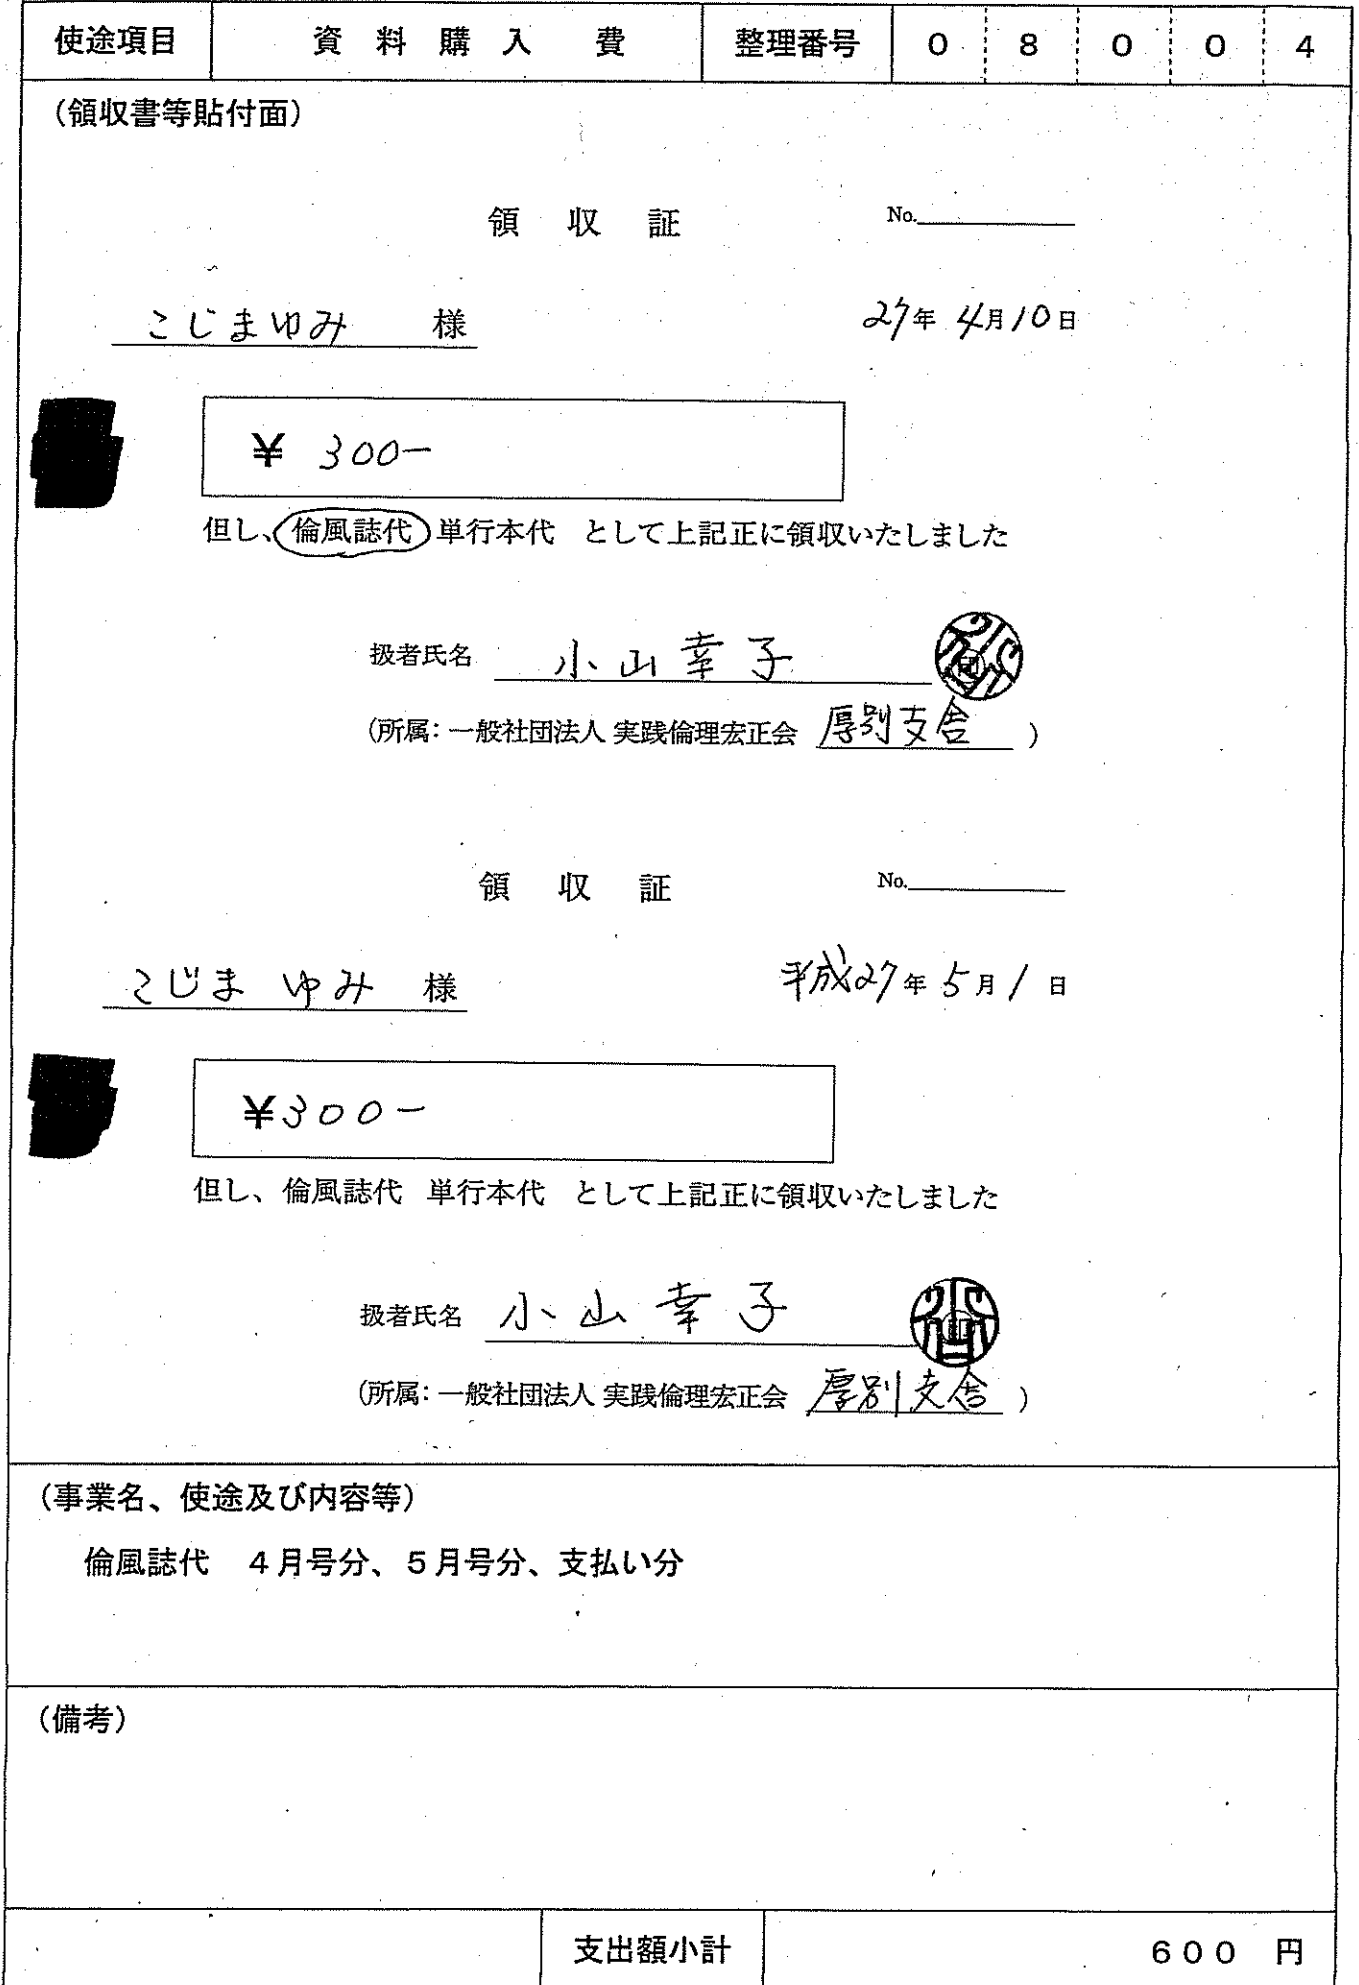 使途項目 資料購入費 整理番号 0 8 0 0 4
（領収書等貼付面）
領収証 No.
こじまゆみ 様 27年 4月10日
¥ 300-
但し、倫風誌代 単行本代 として上記正に領収いたしました
扱者氏名 小山幸子
（所属：一般社団法人 実践倫理宏正会 厚別支舎）
領収証 No.
こじま ゆみ 様 平成27年 5月1日
¥300-
但し、倫風誌代 単行本代 として上記正に領収いたしました
扱者氏名 小山幸子
（所属：一般社団法人 実践倫理宏正会 厚別支舎）
（事業名、使途及び内容等）
倫風誌代 ４月号分、５月号分、支払い分
（備考）
支出額小計 600 円